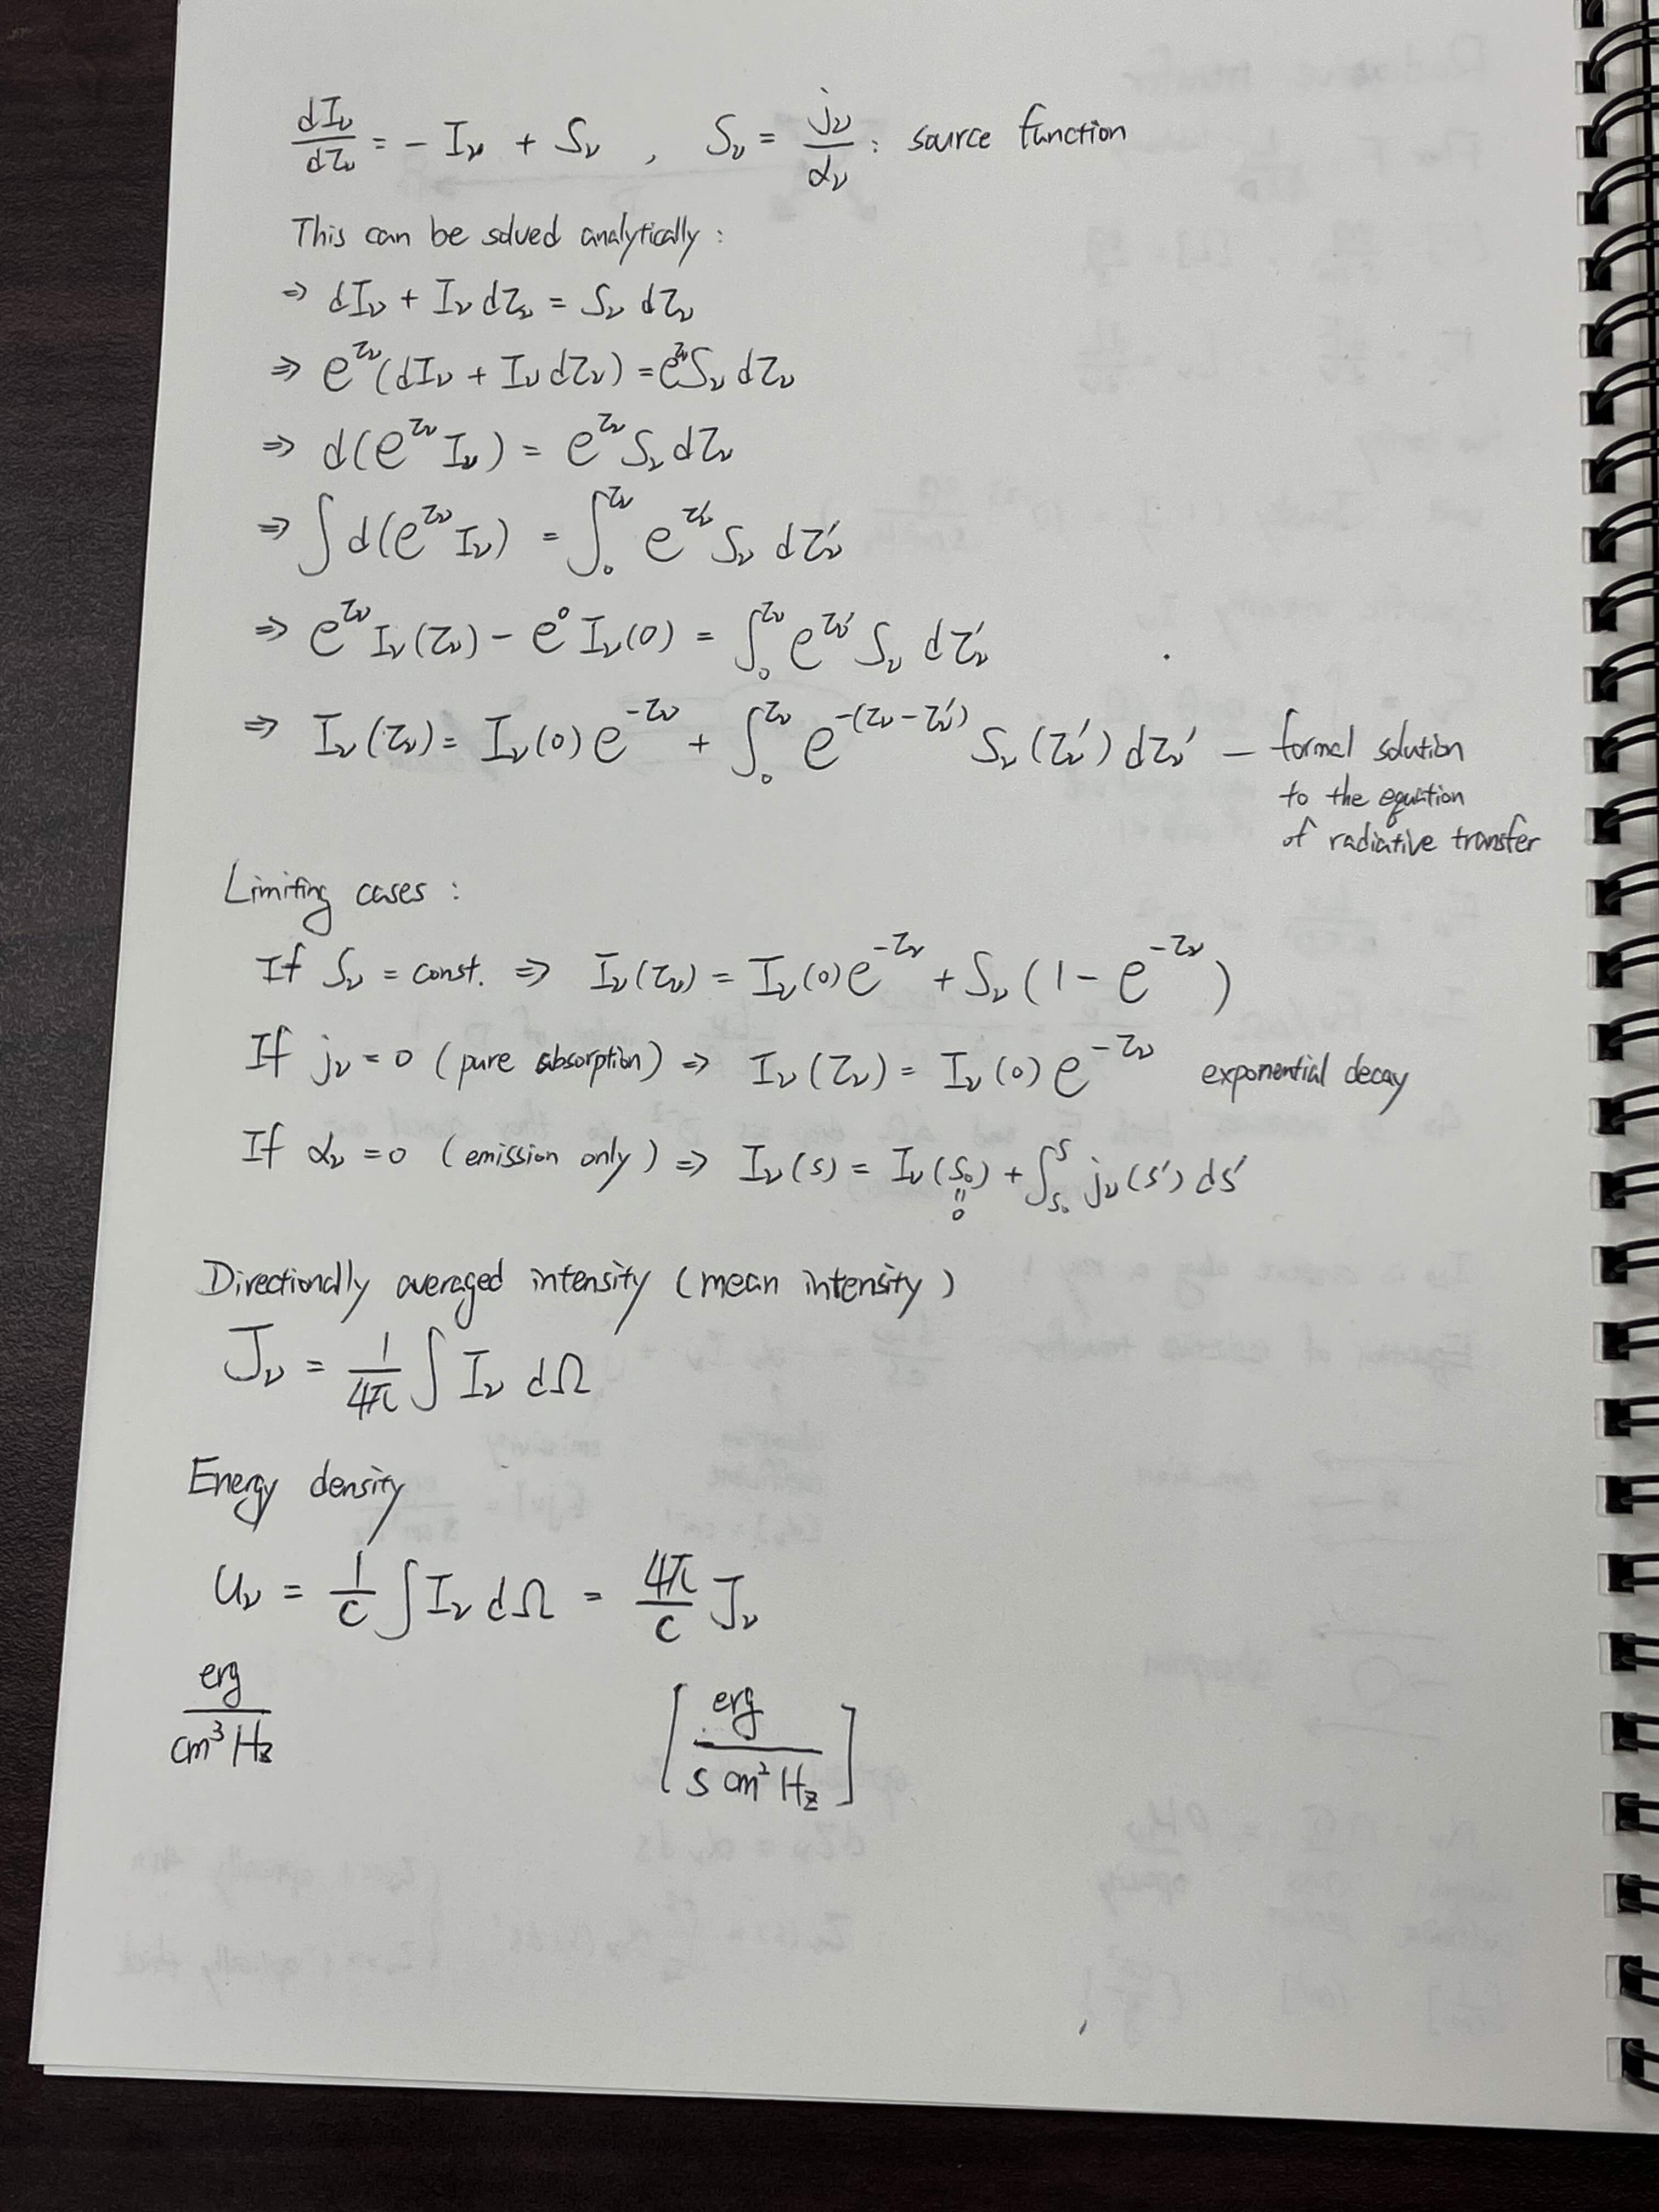 dIν/dτν = - Iν + Sν , Sν = jν/αν : source function
This can be solved analytically :
⇒ dIν + Iν dτν = Sν dτν
⇒ e^τν (dIν + Iν dτν) = e^τν Sν dτν
⇒ d(e^τν Iν) = e^τν Sν dτν
⇒ ∫ d(e^τν Iν) = ∫_0^τν e^τν′ Sν dτν′
⇒ e^τν Iν(τν) - e^0 Iν(0) = ∫_0^τν e^τν′ Sν dτν′
⇒ Iν(τν) = Iν(0) e^-τν + ∫_0^τν e^-(τν - τν′) Sν(τν′) dτν′ — formal solution
to the equation
of radiative transfer
Limiting cases :
If Sν = const. ⇒ Iν(τν) = Iν(0) e^-τν + Sν (1 - e^-τν)
If jν = 0 (pure absorption) ⇒ Iν(τν) = Iν(0) e^-τν exponential decay
If αν = 0 (emission only) ⇒ Iν(s) = Iν(s₀) + ∫_s₀^s jν(s′) ds′
॥
0
Directionally averaged intensity (mean intensity)
Jν = 1/4π ∫ Iν dΩ
Energy density
uν = 1/c ∫ Iν dΩ = 4π/c Jν
erg/cm³ Hz [erg/s cm² Hz]